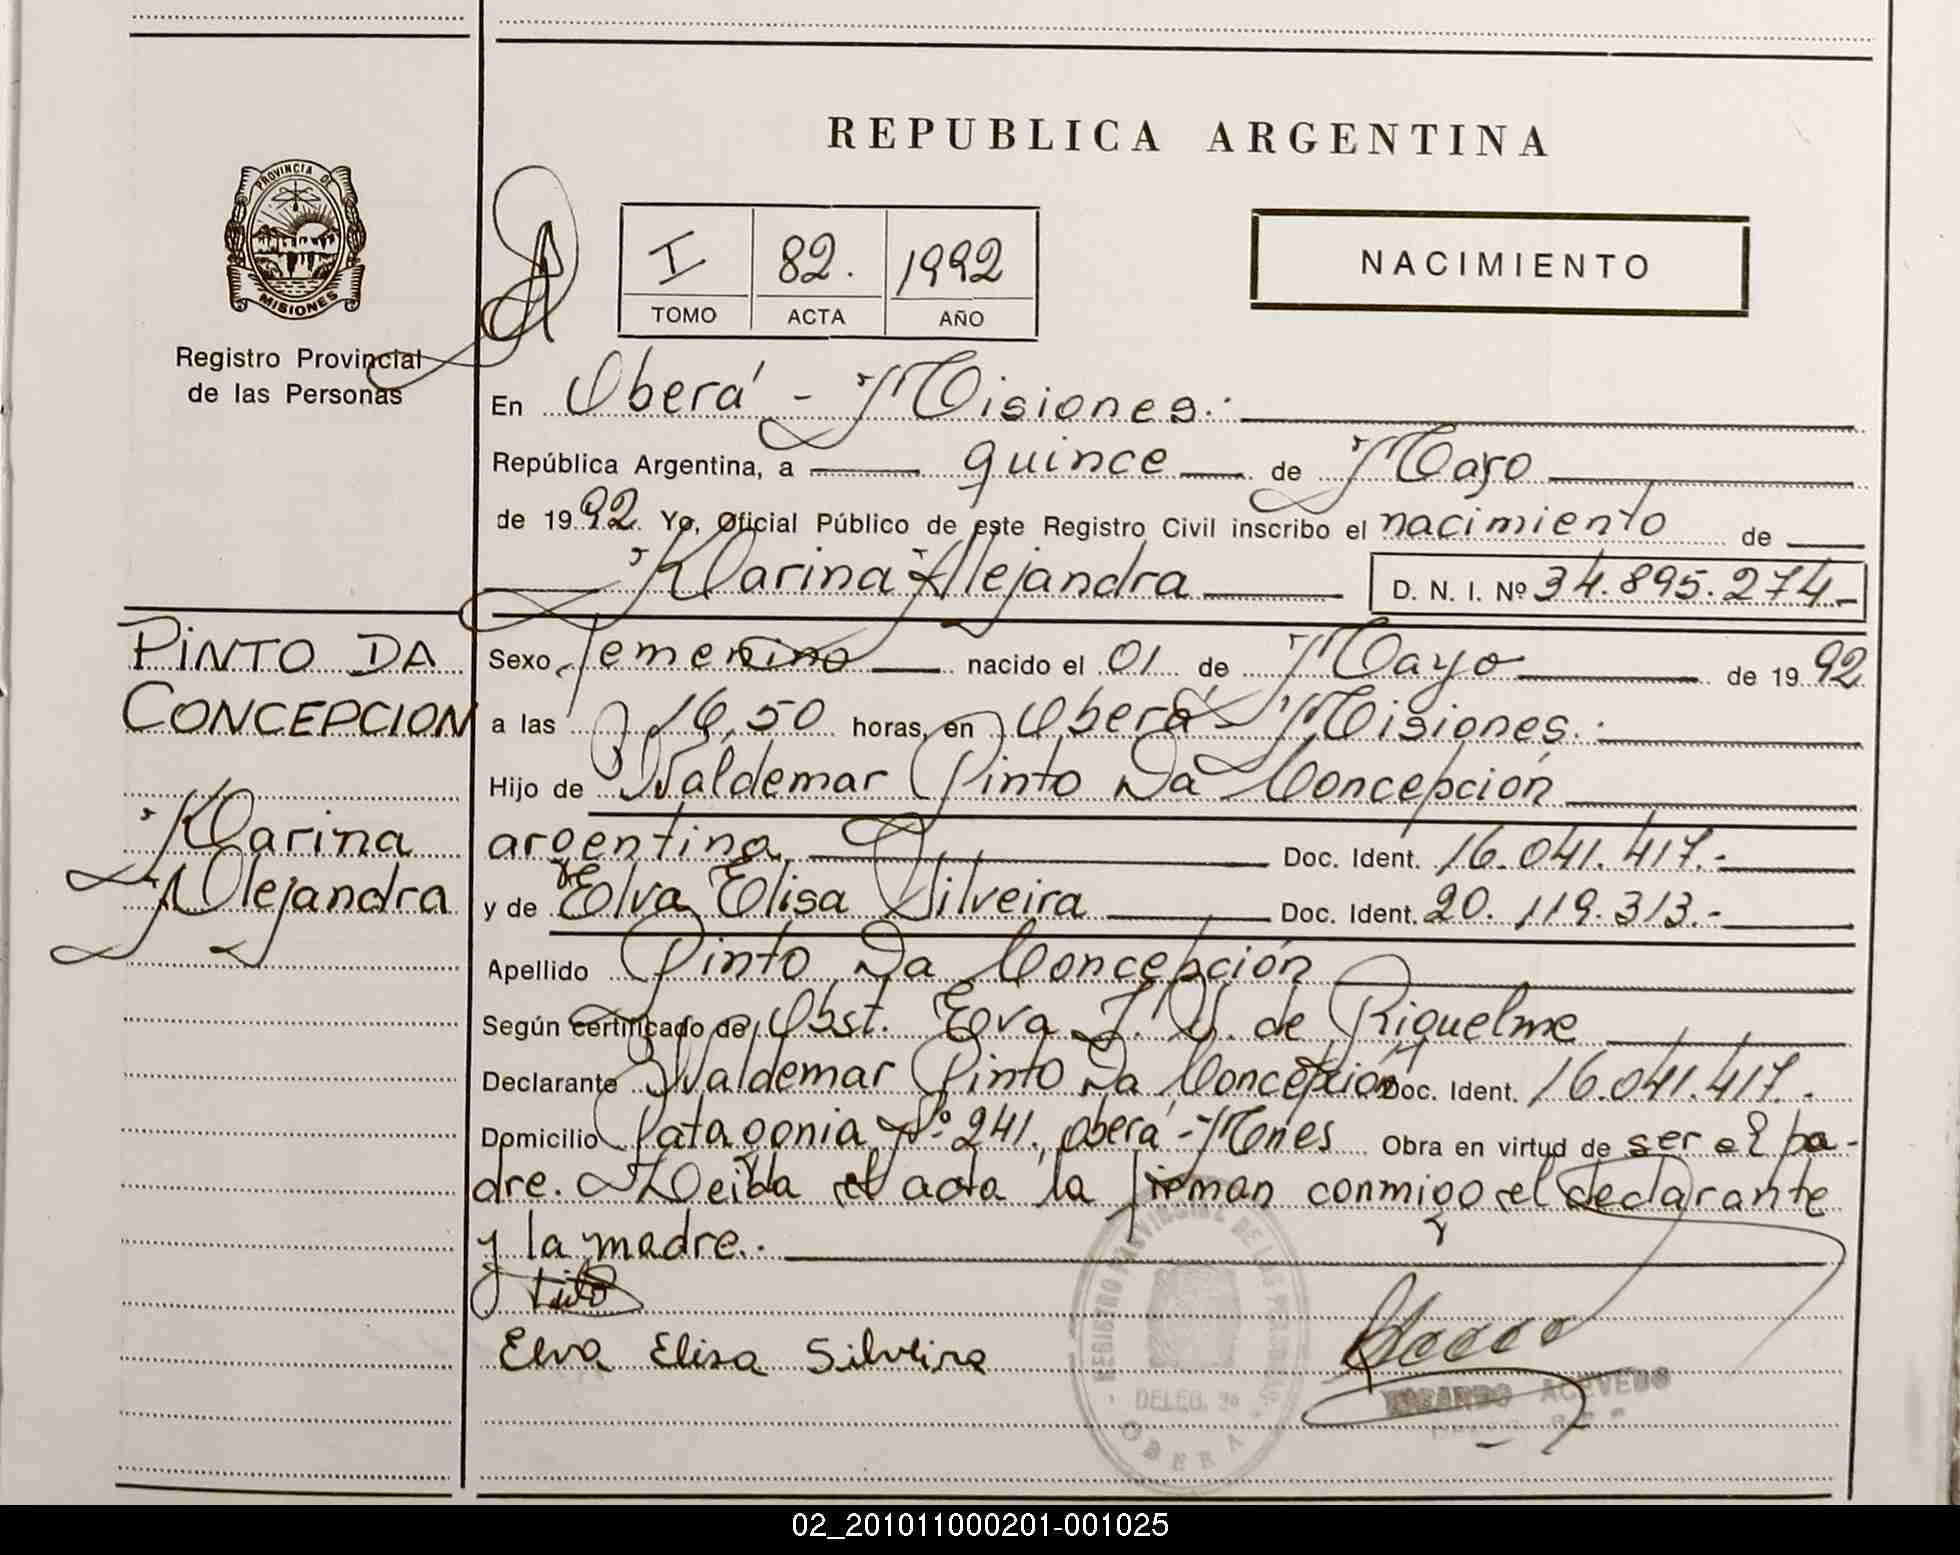 REPUBLICA ARGENTINA
PROVINCIA DE
MISIONES
Registro Provincial
de las Personas
I 82. 1992
TOMO ACTA AÑO
NACIMIENTO
En Oberá - Misiones.-
República Argentina, a quince de Mayo
de 1992. Yo, Oficial Público de este Registro Civil inscribo el nacimiento de
Karina Alejandra D. N. I. Nº 34.895.274.-
PINTO DA
CONCEPCION
Karina
Alejandra
Sexo femenino nacido el 01 de Mayo de 1992
a las 16,50 horas, en Oberá - Misiones.-
Hijo de Waldemar Pinto Da Concepción
argentina Doc. Ident. 16.041.417.-
y de Elva Elisa Silveira Doc. Ident. 20.119.313.-
Apellido Pinto Da Concepción
Según certificado de Obst. Eva de Riquelme
Declarante Waldemar Pinto Da Concepción Doc. Ident. 16.041.417.-
Domicilio Patagonia Nº 241, Oberá - Mnes Obra en virtud de ser el pa-
dre. Leida el acta la firman conmigo el declarante
y la madre.-
Elva Elisa Silveira
REGISTRO PROVINCIAL DE LAS PERSONAS
DELEG.
OBERA
RICARDO ACEVEDO
02_201011000201-001025